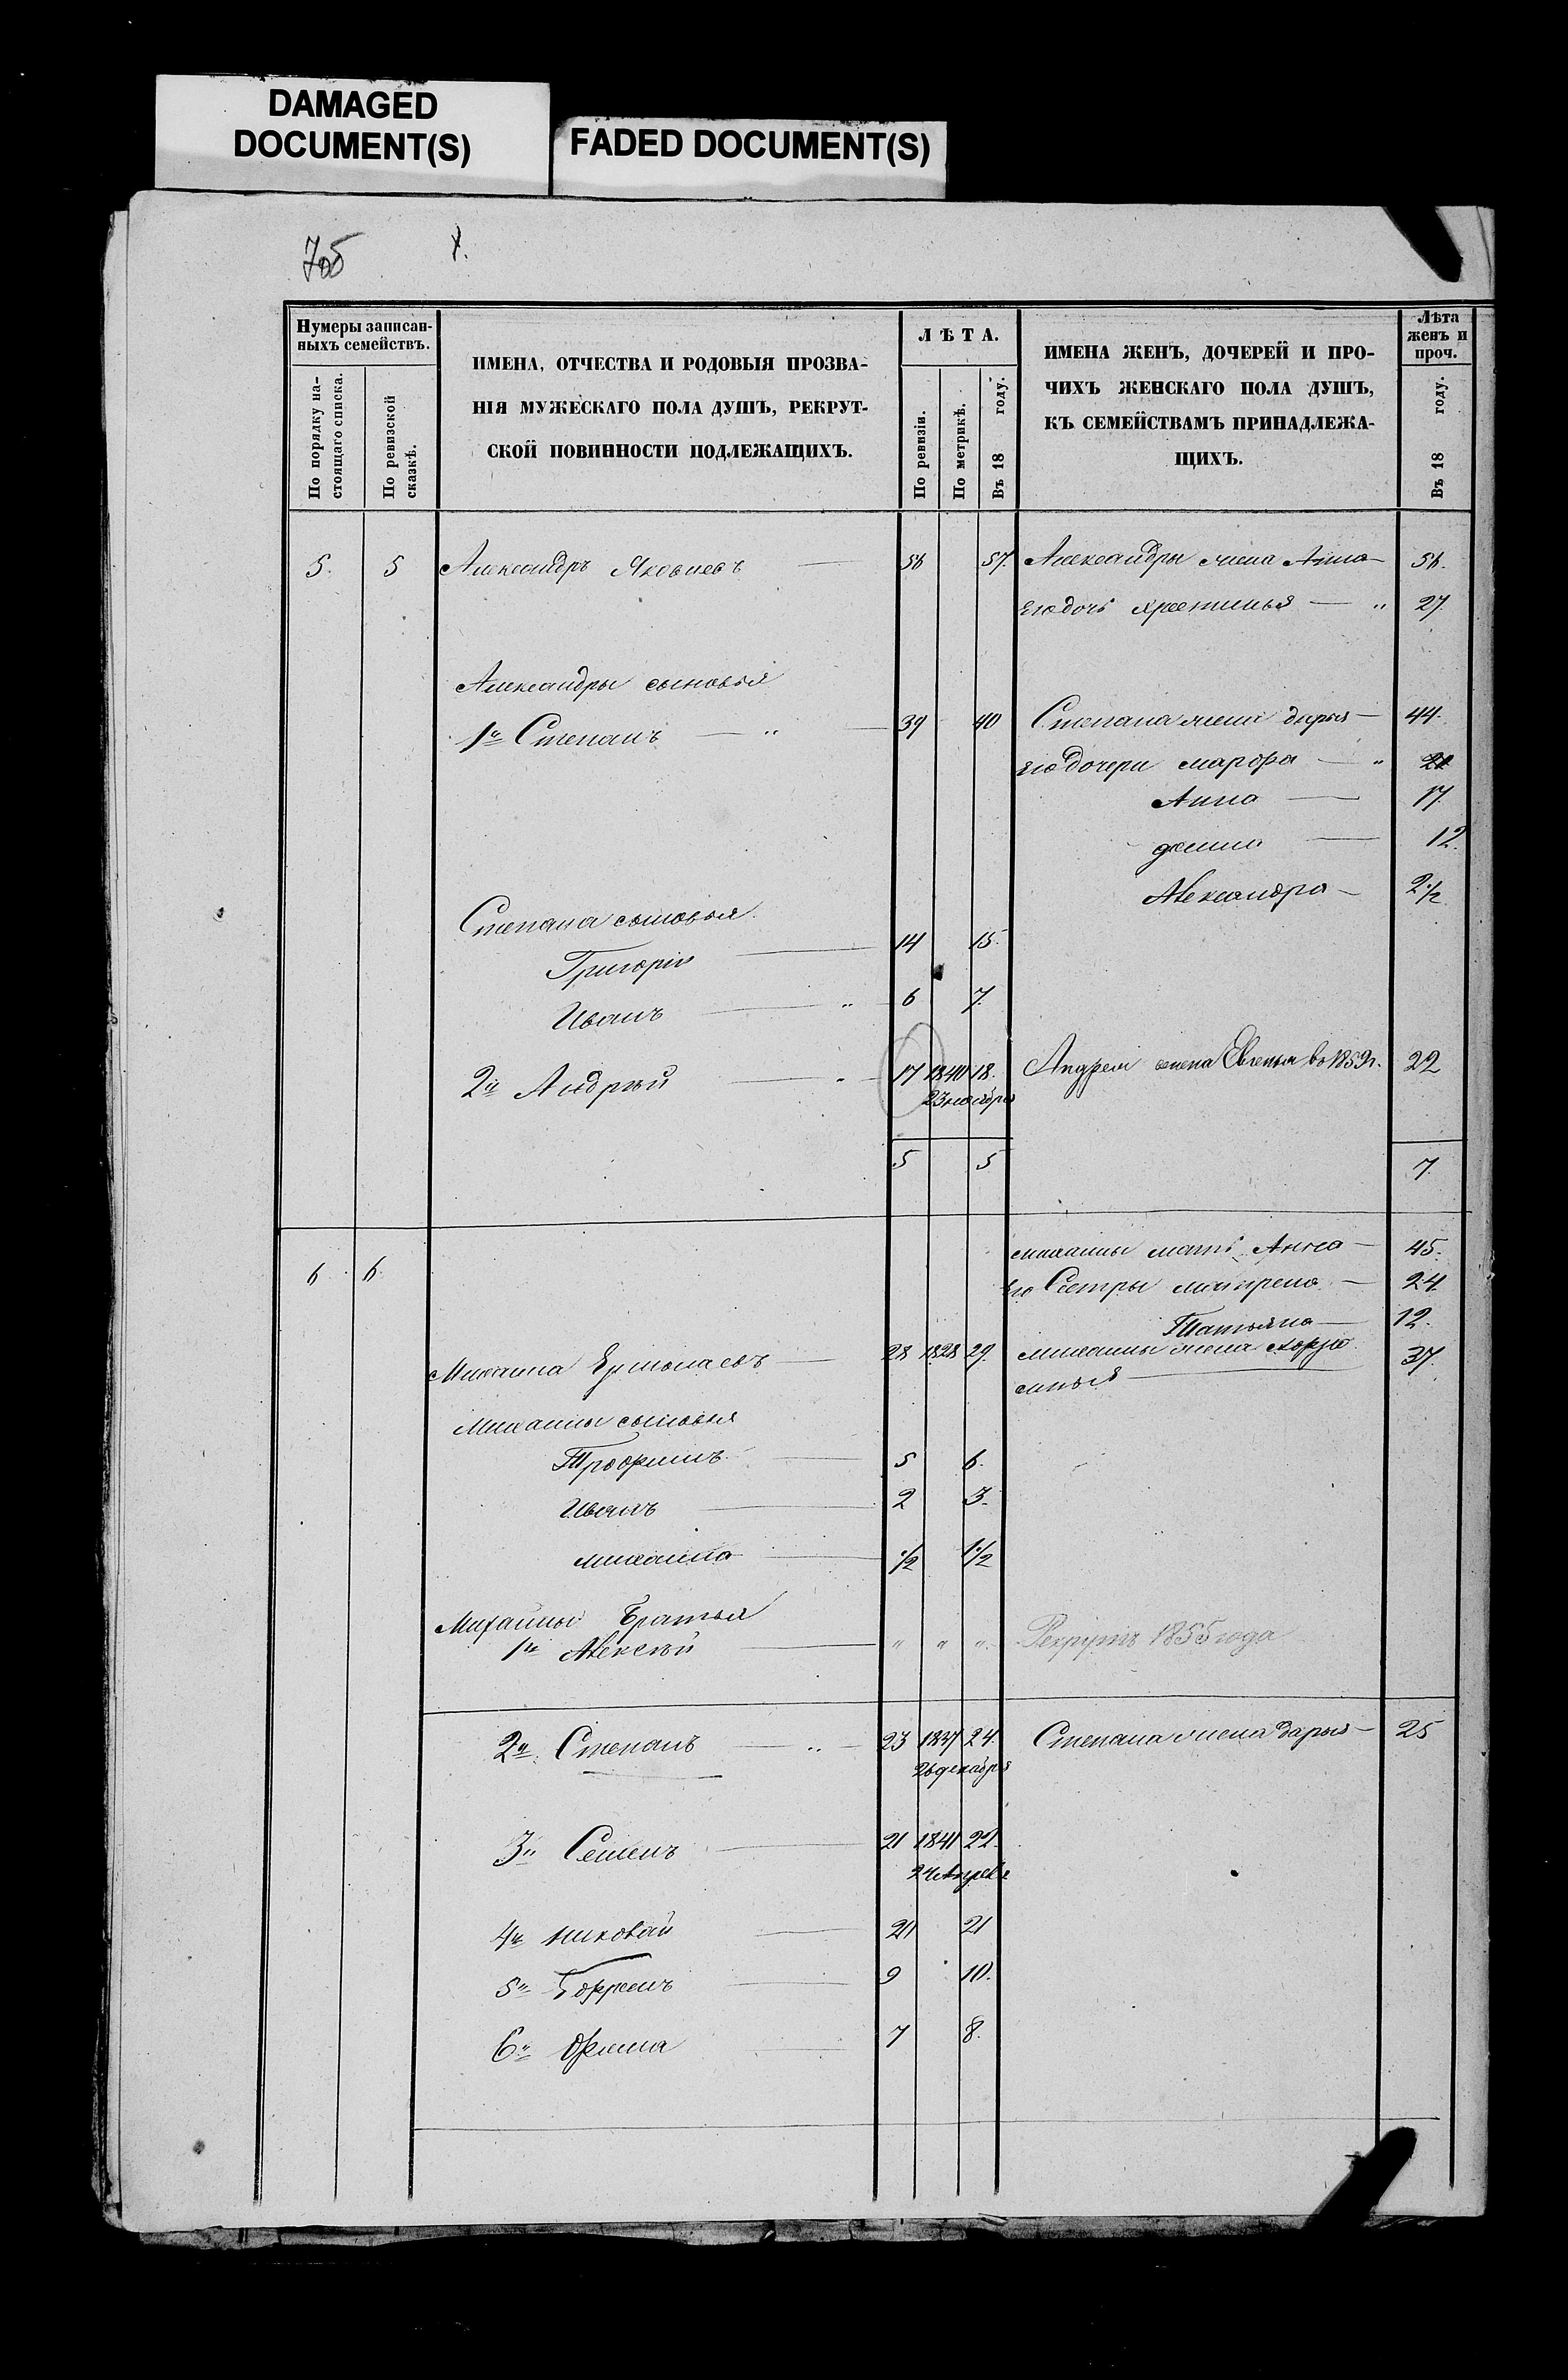 DAMAGED
DOCUMENT(S)
FADED DOCUMENT(S)
Нумеры записан-
ныхъ семействъ.
По порядку на-
стоящаго списка.
По ревизской
сказкѣ.
ИМЕНА, ОТЧЕСТВА И РОДОВЫЯ ПРОЗВА-
НІЯ МУЖЕСКАГО ПОЛА ДУШЪ, РЕКРУТ-
СКОЙ ПОВИННОСТИ ПОДЛЕЖАЩИХЪ.
ЛѢТА.
По ревизіи.
По метрикѣ.
Въ 18 году.
ИМЕНА ЖЕНЪ, ДОЧЕРЕЙ И ПРО-
ЧИХЪ ЖЕНСКАГО ПОЛА ДУШЪ,
КЪ СЕМЕЙСТВАМЪ ПРИНАДЛЕЖА-
ЩИХЪ.
Лѣта
женъ и
проч.
Въ 18 году.
5. 5 Александръ Яковлевъ 56 57. Александры жена Анна 56.
его дочь Хрестинья 27.
Александры сыновья
1й Степанъ 39 40 Степана жена дарья 44.
его дочери марфа
Анна 17.
12.
Александра 2 1/2
Степана сыновья
Григорій 14 15.
Иванъ 6 7.
2й Андрѣй 17 1840 18. Андрея жена Евгенья 22
23 ноября
5 5 7.
6 6. михаилы мать Анна 45.
его Сестры матрена 24.
Татьяна 12.
Михаила Ермолаевъ 28 1828 29. михаилы жена 37.
Михаилы сыновья
Трофимъ 5 6.
Иванъ 2 3.
михаила 1/2 1 1/2
Михаилы Братья
1й Алексѣй Рекрутъ 1855 года
2й. Степанъ 23 1837 24. Степана жена дарья 25
26 декабря
3й Семенъ 21 1841 22.
24 Апреля
4й николай 21
5й Ефремъ 9 10.
6й Фама 7 8.